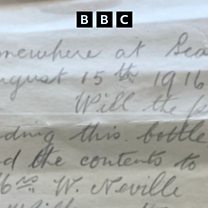 BBC
Somewhere at Sea
August 15th 1916
Will the
this bottle
the contents to
W. Neville